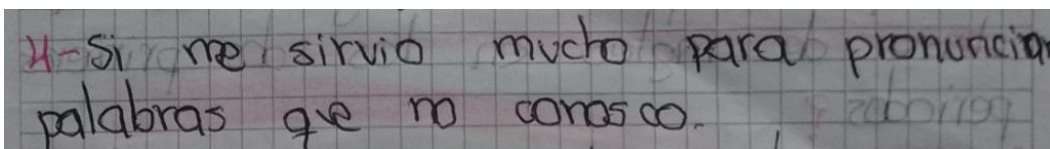 4-Si me sirvio mucho para pronunciar
palabras que no conosco.